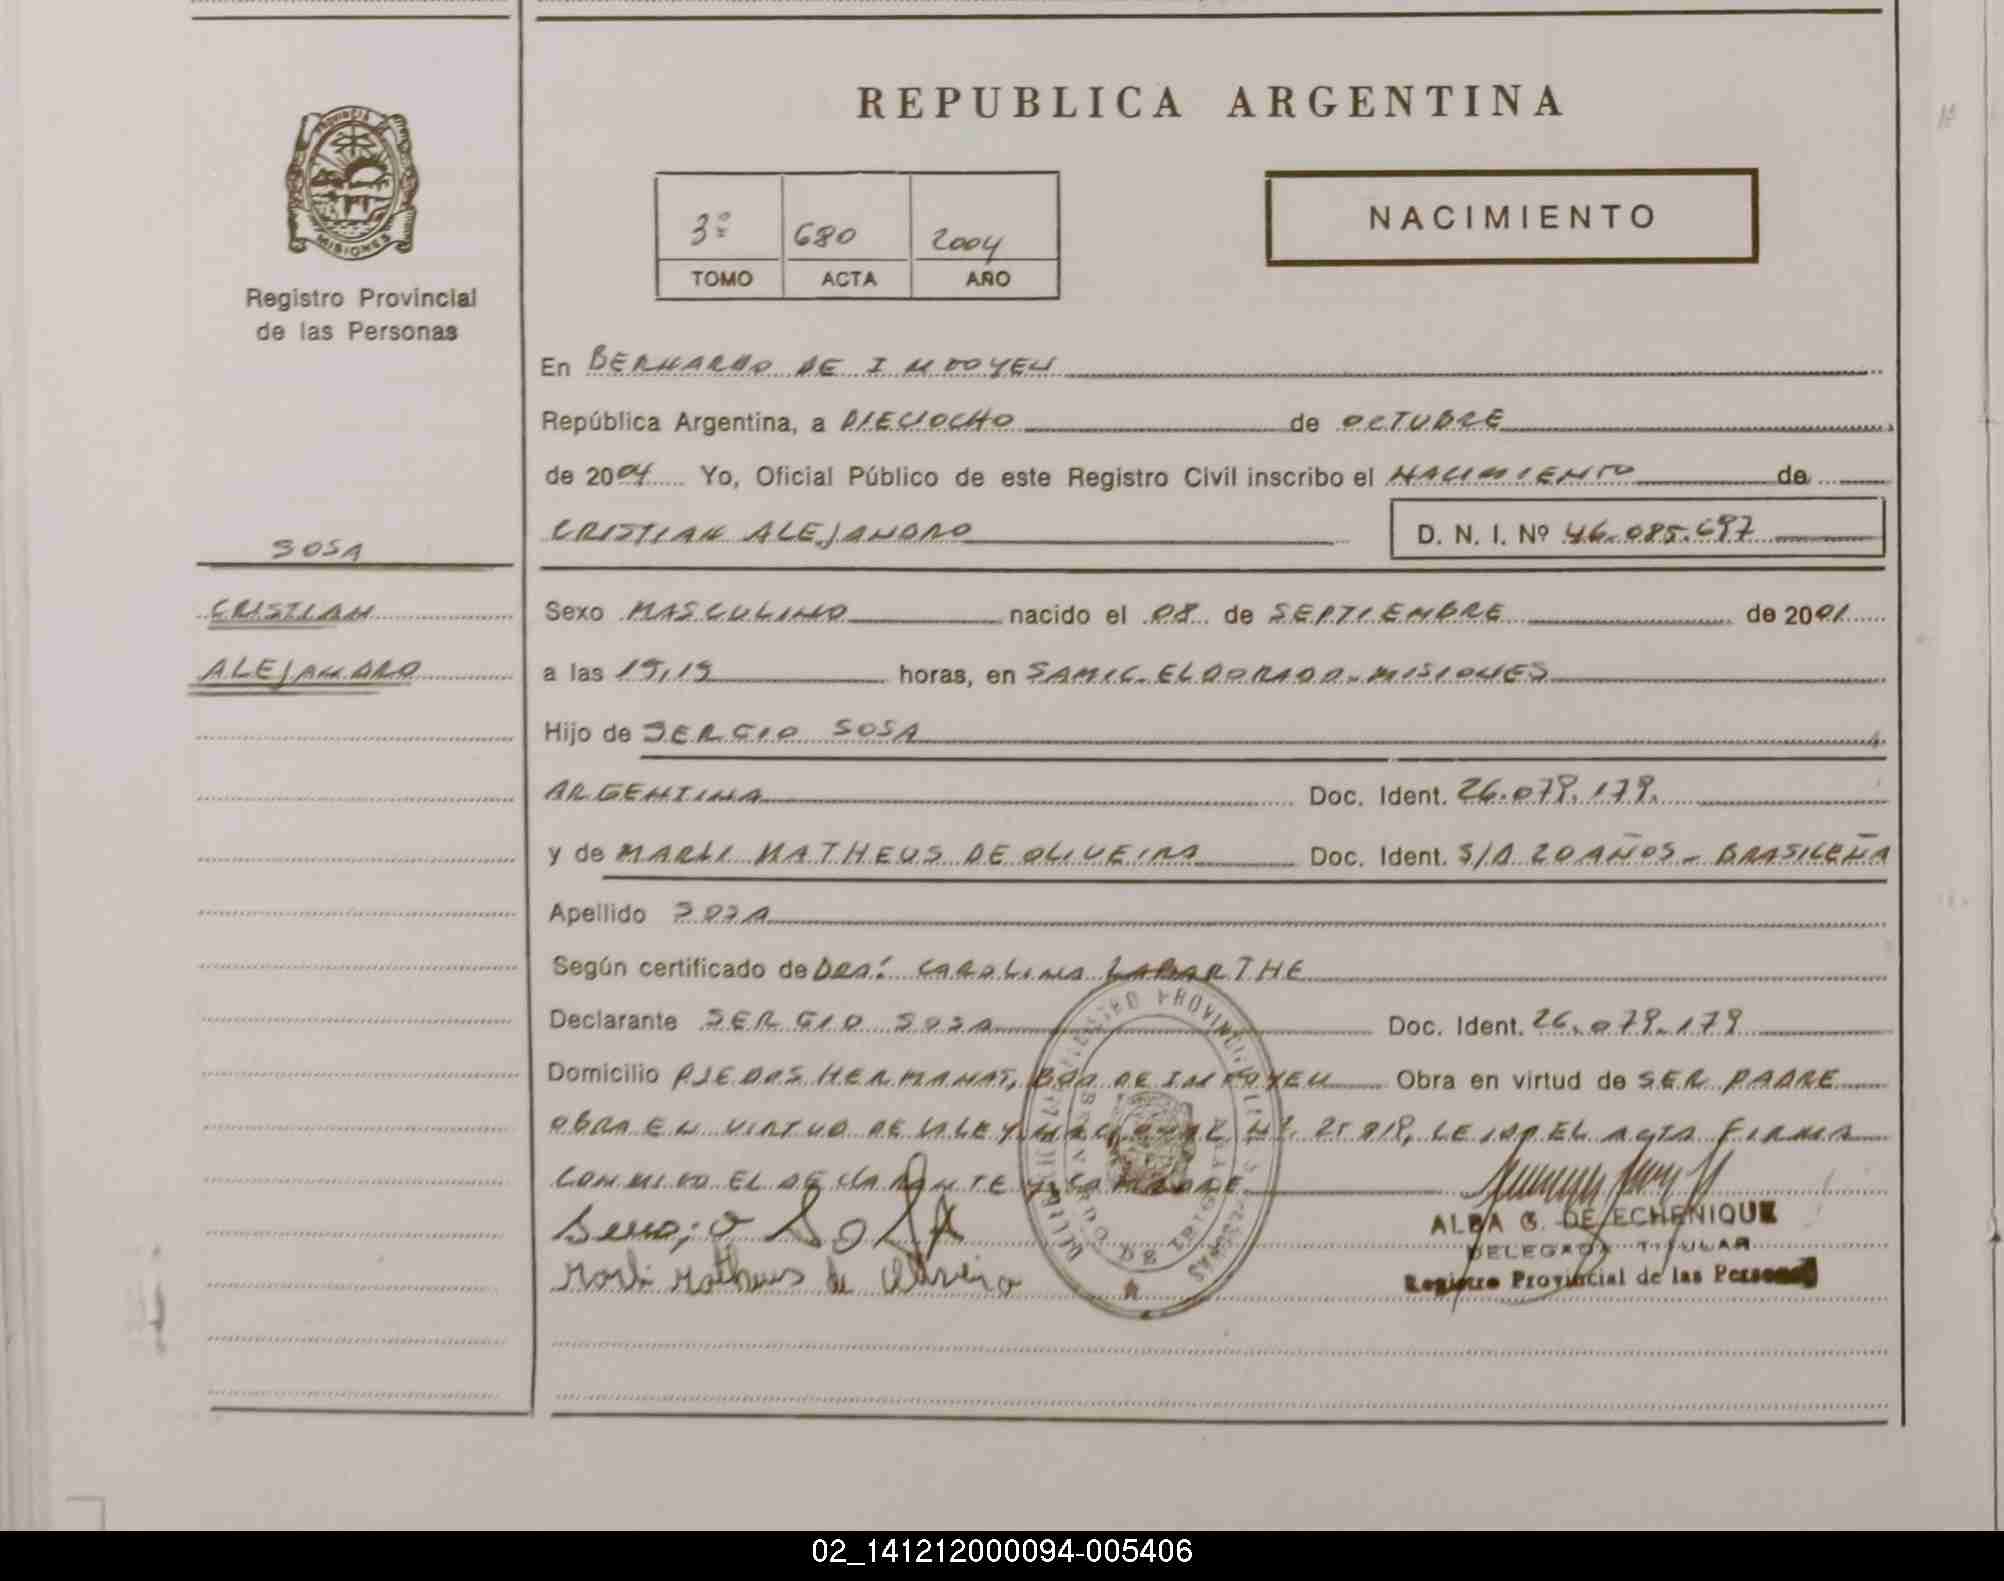 REPUBLICA ARGENTINA
PROVINCIA DE
MISIONES
Registro Provincial
de las Personas
3º 680 2004
TOMO ACTA AÑO
NACIMIENTO
En BERNARDO DE IRIGOYEN
República Argentina, a DIECIOCHO de OCTUBRE
de 2004 Yo, Oficial Público de este Registro Civil inscribo el NACIMIENTO de
SOSA
CRISTIAN ALEJANDRO D. N. I. Nº 46.085.697
CRISTIAN
Sexo MASCULINO nacido el 08 de SEPTIEMBRE de 2001
ALEJANDRO
a las 19,19 horas, en SAMIC. ELDORADO. MISIONES
Hijo de SERGIO SOSA
ARGENTINA Doc. Ident. 26.079.179.
y de MARLI MATHEUS DE OLIVEIRA Doc. Ident. S/D 20 AÑOS - BRASILEÑA
Apellido SOSA
Según certificado de DRA: CAROLINA LABARTHE
Declarante SERGIO SOSA Doc. Ident. 26.079.179
Domicilio HERMANAS, BDO DE IRIGOYEN Obra en virtud de SER PADRE
OBRA EN VIRTUD DE LA LEY NACIONAL Nº 25.819, LEIDO EL ACTA FIRMA
CONMIGO EL DECLARANTE Y LA MADRE
Sergio SOSA
Marli Matheus de Oliveira
ALBA G. DE ECHENIQUE
DELEGADA TITULAR
Registro Provincial de las Personas
02_141212000094-005406